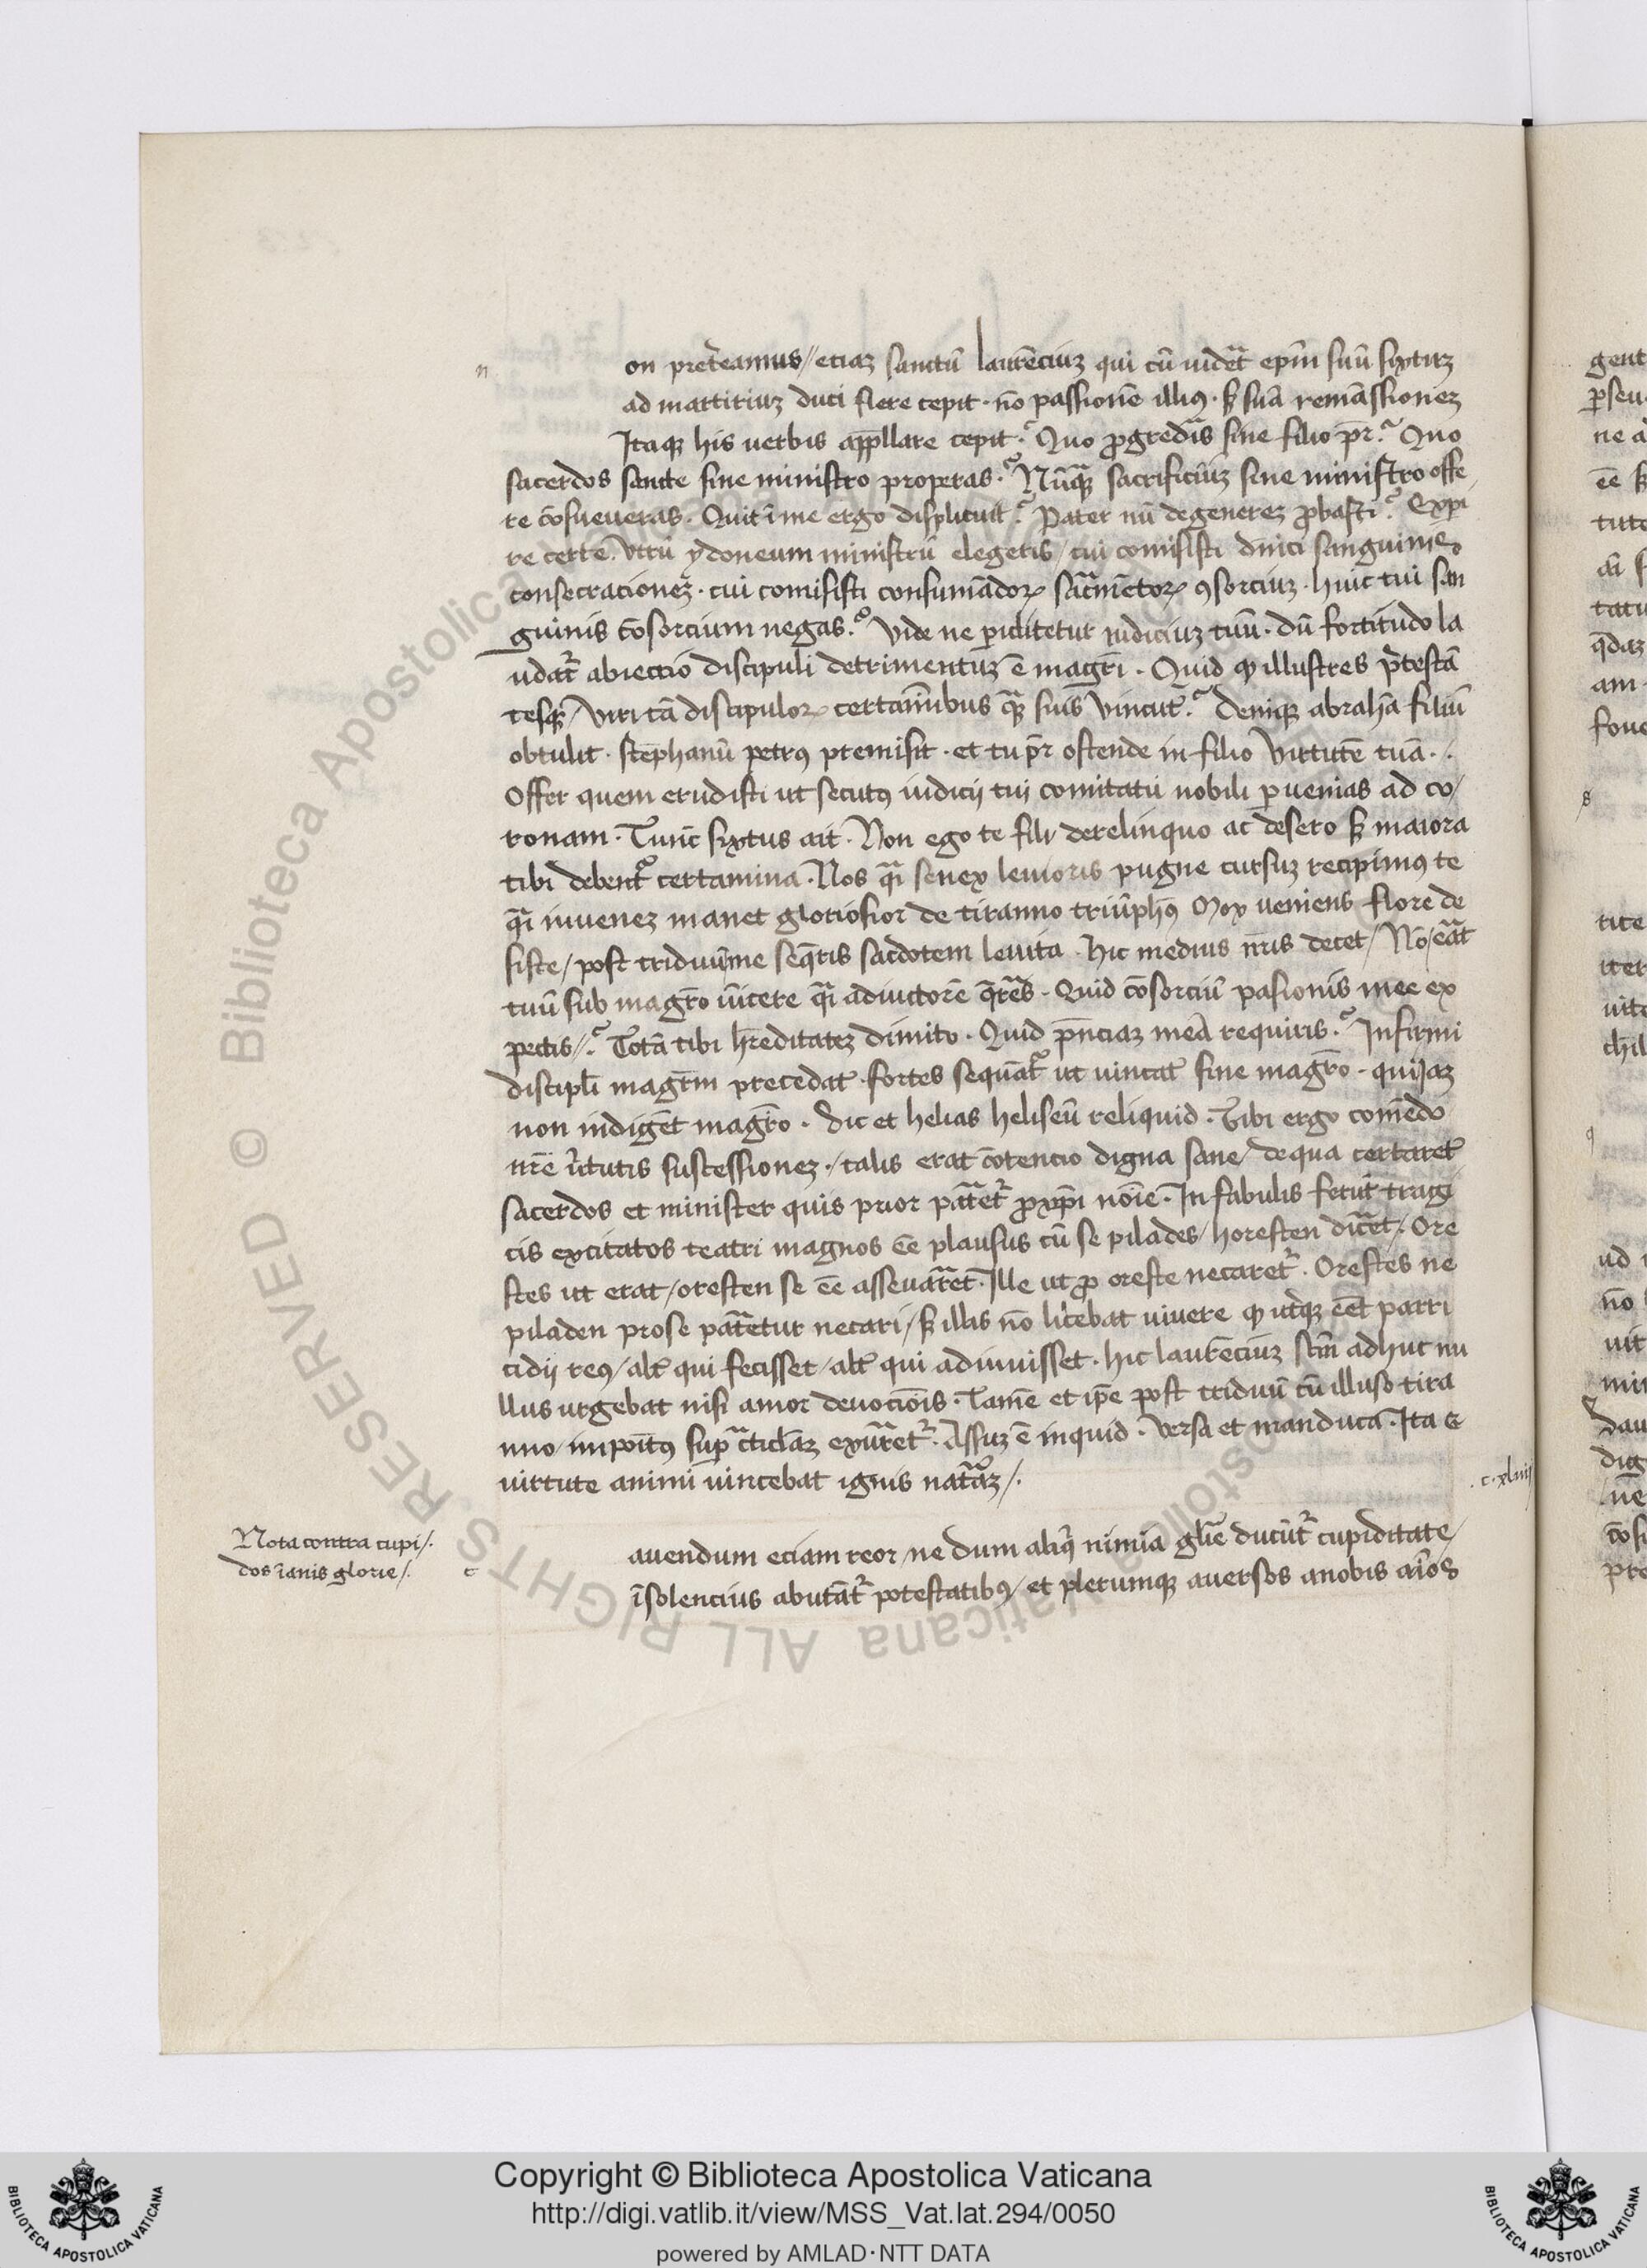 n on pret̃eamus // eciaʒ sanctū laurēciuʒ qui cū uid̃et ep̄m suū sixtuʒ
ad martiriuʒ duci flere cepit · nō passionē illiꝰ · sꝫ suā remāssioneʒ
Itaqꝫ his uerbis app̄llare cepit · Quo ꝓgred̃is sine filio pr̄ · Quo
sacerdos sancte sine ministro properas · Nūq̃ꝫ sacrificiūʒ sine ministro offe
re cōsueueras · Quit ī me ergo displicuit Pater nū degenereʒ ꝓbasti Exꝑi
re certe · Vtrū ydoneum ministrū elegeris / cui comisisti dnici sanguinis
consecracioneʒ · cui comisisti consumādoꝝ sac̃mētoꝝ ꝯsorciuʒ · huic tui san
guinis cōsorcium negas · Vide ne ꝑiclitetur iudiciuʒ tuū · dū fortitudo la
udat̃ abiectio discipuli detrimentuʒ ē magr̄i · Quid ꝙ illustres p̃testā
tesqꝫ / Viri tā discipuloꝝ certaīnibus q̃ꝫ suis Vincūt̃ · Deniqꝫ abrahā filiū
obtulit · stephanū petrꝰ premisit · et tu pr̄ ostende in filio Virtutē tuā · /
Offer quem erudisti ut securꝰ iudicij tui comitatu nobili ꝑuenias ad co /
ronam · Tunc sixtus ait · Non ego te fili derelinquo ac desero sꝫ maiora
tibi debent̃ certamina · Nos q̃i senex leuioris pugne cursuʒ recipimꝰ te
q̃i iuueneʒ manet gloriosior de tiranno triūphꝰ Mox ueniens flore de
siste / post triduū me seq̄ris sac̃dotem leuita · hic medius nr̄us decet / Nō / eat̃
tuū sub magr̄o uīcere q̃i adiutorē q̄res̃ · Quid cōsorciū pasionis mee ex
pectis // Totā tibi hr̄editateʒ dimito · Quid pn̄ciaʒ meā requiris · Infirmi
discipl̄i magr̄m precedat̃ · fortes sequāt̃ ut uincat̃ sine magr̄o · qui iaʒ
non indigēt magr̄o · Sic et helias heliseū reliquid · Tibi ergo comēdo
nr̄e ũtutis suscessioneʒ · / talis erat cōtencio digna sane / de qua certaret̃
sacerdos et minister quis prior pat̃et̃ ꝓ xp̄i noīe · In fabulis fertur̃ tragi
cis excitatos teatri magnos eē plausus cū se pilades / horesten dic̃et / · Ore
stes ut erat / oresten se eē asseuar̃et · Ille ut ꝓ oreste necaret̃ · Orestes ne
piladen pro se pat̃etur necari / sꝫ illis nō licebat uiuere ꝙ ut̃qꝫ eēt parri
cidij reꝰ / alt̃ qui fecisset / alt̃ qui adiuuisset · hic laurēciuʒ scm̄ adhuc nu
llus urgebat nisi amor deuociōis · Tamē et ip̄e post triduū cū illuso tira
nno / impoītꝰ sup̃ cticl̄aʒ exur̃et̃ · Assuʒ ē inquid · Versa et manduca · Ita
uirtute animi uincebat ignis nat̃aʒ / ·
· c · xluij
Nota contra cupi / ·
dos īanis glorie / ·
c auendum eciam reor / ne dum aliq̃ nimia gl̄ie ducūt̃ cupiditate /
īsolencius abutāt̃ potestatibꝰ / et plerumqꝫ auersos a nobis aīos
Copyright © Biblioteca Apostolica Vaticana
http://digi.vatlib.it/view/MSS_Vat.lat.294/0050
powered by AMLAD·NTT DATA